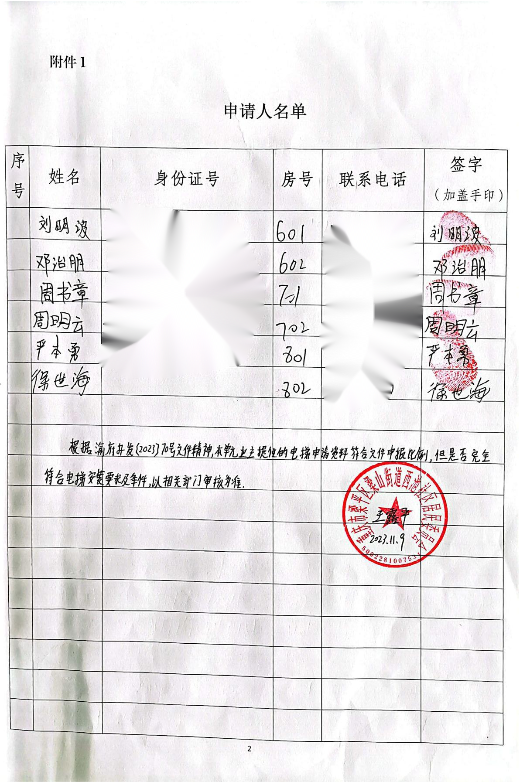 附件1
申请人名单
序号 姓名 身份证号 房号 联系电话 签字（加盖手印）
刘明波 601 刘明波
邓治朋 602 邓治朋
周书章 701 周书章
周明云 702 周明云
严本勇 801 严本勇
徐世海 802 徐世海
根据渝府办发(2023)70号文件精神,本单元业主提供的电梯申请资料符合文件申报比例,但是否完全
符合电梯安装要求及条件,以相关部门审核为准.
重庆市梁平区梁山街道西池社区居民委员会
2023.11.9
2